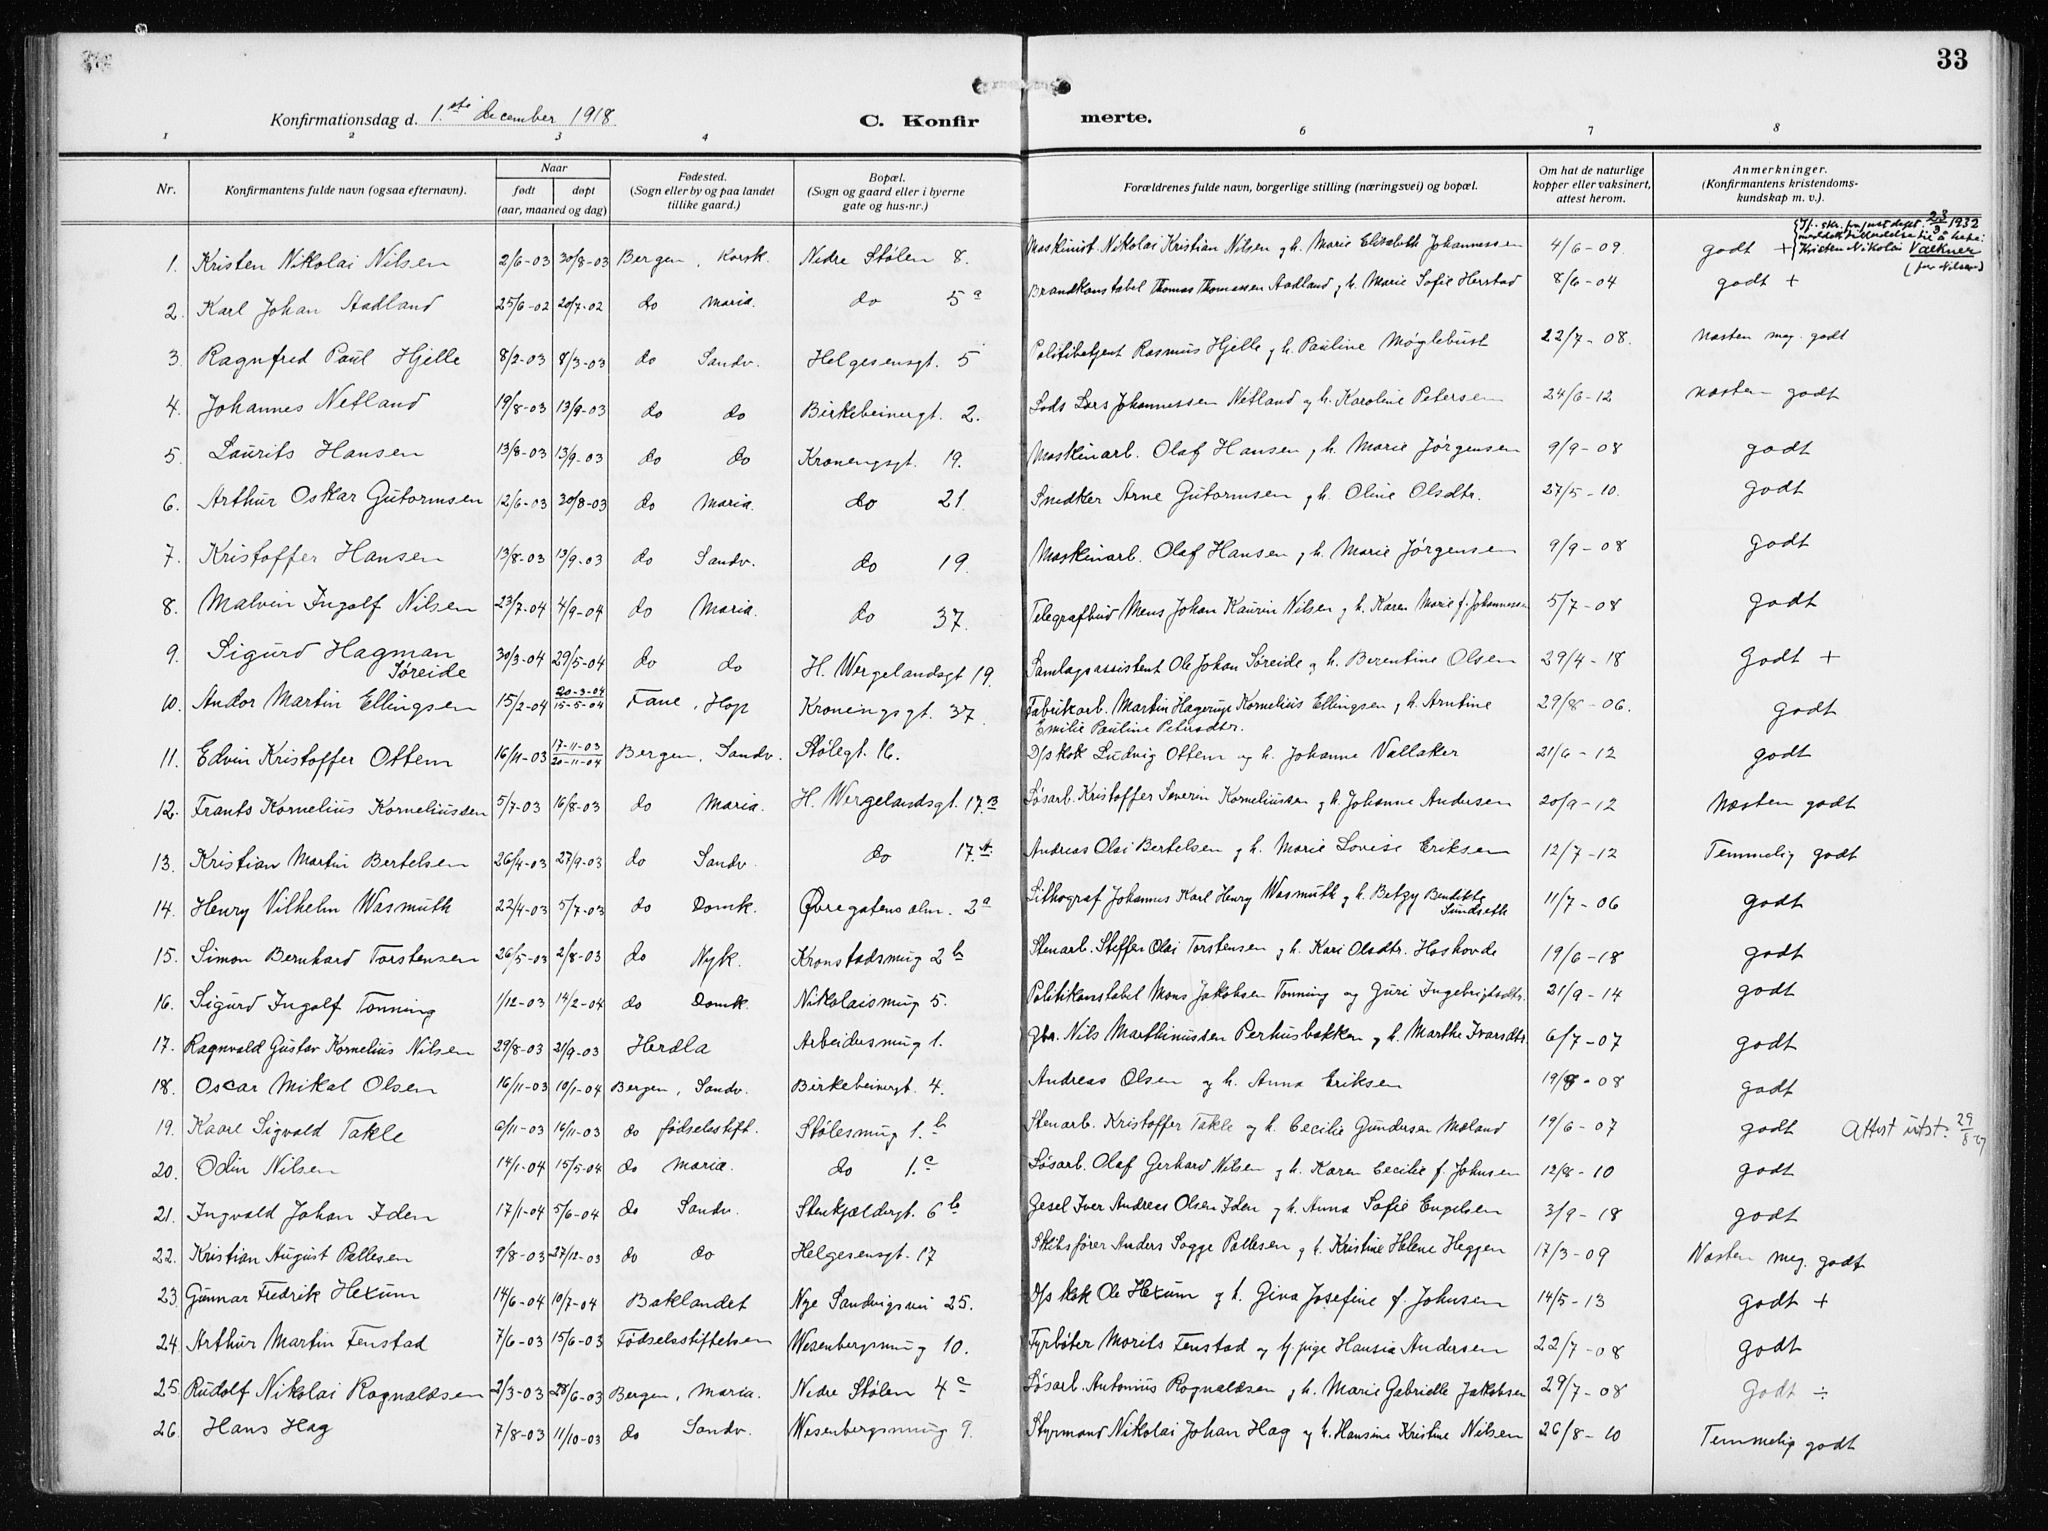 33
Konfirmationsdag d. 1.ste december 1918
C. Konfirmerte.
1 2 3 4 6 7 8
Nr. Konfirmantens fulde navn (ogsaa efternavn). Naar født døpt (aar, maaned og dag) Fødested. (Sogn eller by og paa landet tillike gaard.) Bopæl. (Sogn og gaard eller i byerne gate og hus-nr.) Forældrenes fulde navn, borgerlige stilling (næringsvei) og bopæl. Om hat de naturlige kopper eller vaksinert, attest herom. Anmerkninger. (Konfirmantens kristendoms- kundskap m. v.).
1. Kristen Nikolai Nilsen 2/6-03 30/8-03 Bergen, Korsk. Nedre Stølen 8. Maskinist Nikolai Kristian Nilsen og h. Marie Elisabeth Johannessen 4/6-09 godt + Kristen Nikolai Valkner (før Nilsen)
2. Karl Johan Aadland 25/6-02 20/7-02 do Maria. do 5a Brandkonstabel Thomas Thomassen Aadland og h. Marie Sofie Herstad 8/6-04 godt +
3. Ragnfred Paul Hjelle 8/2-03 8/3-03 do Sandv. Helgesensgt. 5 Politibetjent Rasmus Hjelle og h. Pauline Møglebust 22/7-08. Næsten meg. godt
4. Johannes Netland 19/8-03 13/9-03 do do Birkebeinergt. 2. Lods Lars Johannessen Netland og h. Karoline Petersen 24/6-12 næsten godt
5. Laurits Hansen 13/8-03 13/9-03 do do Kroningsgt. 19. Maskinarb. Olaf Hansen og h. Marie Jørgensen 9/9-08 godt
6. Arthur Oskar Gutormsen 12/6-03 30/8-03 do Maria. do 21. Snedker Arne Gutormsen og h. Oline Olsdtr. 27/5-10. godt
7. Kristoffer Hansen 13/8-03 13/9-03 do Sandv. do 19. Maskinarb. Olaf Hansen og h. Marie Jørgensen 9/9-08 godt
8. Malvin Ingolf Nilsen 23/7-04 4/9-04 do Maria. do 37. Telegrafbud Mons Johan Kaurin Nilsen og h. Karen Marie f. Johannessen 5/7-08 godt
9. Sigurd Hagman Søreide 30/3-04 29/5-04 do do H. Wergelandsgt 19. Samlagsassistent Ole Johan Søreide og h. Berentine Olsen 29/4-18 Godt +
10. Andor Martin Ellingsen 15/2-04 20-3-04 15-5-04 Fane, Hop Kroningsgt. 37. Fabrikarb. Martin Hagerup Kornelius Ellingsen og h. Arntine Emilie Pauline Petersdtr. 29/8-06. godt
11. Edvin Kristoffer Ottem 16/11-03 17-11-03 20-11-04 Bergen, Sandv. Stølegt. 16. D/s kok Ludvig Ottem og h. Johanne Vallaker 21/6-12 godt
12. Frants Kornelius Korneliussen 5/7-03 16/8-03 do Maria. H. Wergelandsgt. 17.B Løsarb. Kristoffer Severin Korneliussen og h. Johanne Andersen 20/9-12 Næsten godt
13. Kristian Martin Bertelsen 26/4-03 27/9-03 do Sandv. do 17.A Andreas Olai Bertelsen og h. Marie Lovise Eriksen 12/7-12 Temmelig godt
14. Henry Vilhelm Wasmuth 22/4-03 5/7-03 do Domk. Øvregatens alm. 2a Lithograf Johannes Karl Henry Wasmuth og h. Betzy Bendikte Sundseth 11/7-06 godt
15. Simon Bernhard Torstensen 26/5-03 2/8-03 do Nyk. Kronstadsmug 2b Stenarb. Steffen Olai Torstensen og h. Kari Olsdtr. Hashovde 19/6-18 godt
16. Sigurd Ingolf Tonning 1/12-03 14/2-04 do Domk. Nikolaismug 5. Politikonstabel Mons Jakobsen Tonning og Guri Ingebrigtsdtr. 21/9-14 godt
17. Ragnvald Gustav Kornelius Nilsen 29/8-03 21/9-03 Herdla Arbeidermug 1. Gbr. Nils Marthinussen Perhusbakken og h. Marthe Ivarsdtr. 6/7-07 godt
18. Oscar Mikal Olsen 16/11-03 10/1-04 Bergen, Sandv. Birkebeinergt. 4. Andreas Olsen og h. Anna Eriksen 19/8-08 godt
19. Kaare Sigvald Takle 6/11-03 16/11-03 do fødselsstift. Stølesmug 1.b Stenarb. Kristoffer Takle og h. Cecilie Gundersen Mæland 19/6-07 godt Attest utst. 29/8 27
20. Odin Nilsen 14/1-04 15/5-04 do Maria. do 1.c Løsarb. Olaf Gerhard Nilsen og h. Karen Cecilie f. Johnsen 12/8-10 godt
21. Ingvald Johan Iden 17/1-04 5/6-04 do Sandv. Stenkjældergt. 6b Gesel Iver Andreas Olsen Iden og h. Anna Sofie Engelsen 3/9-18 godt
22. Kristian August Pallesen 9/8-03 27/12-03 do do Helgesensgt. 17 Skibsfører Anders Sogge Pallesen og h. Kristine Helene Heggen 17/3-09 Næsten meg. godt
23. Gunnar Fredrik Hexum 14/6-04 10/7-04 Baklandet Nye Sandvigsvei 25. D/s kok Ole Hexum og h. Gina Josefine f. Johnsen 14/5-13 godt +
24. Arthur Martin Fenstad 7/6-03 15/6-03 Fødselsstiftelsen Wesenbergsmug 10. Fyrbøter Morits Fenstad og tj.pige Hansia Andersen 22/7-08 godt
25. Rudolf Nikolai Ragnaldsen 2/3-03 28/6-03 Bergen, Maria. Nedre Stølen 4c Løsarb. Antonius Ragnaldsen og h. Marie Gabrielle Jakobsen 29/7-08 Godt ÷
26. Hans Hag 7/8-03 11/10-03 do Sandv. Wesenbergsmug 9. Styrmand Nikolai Johan Hag og h. Hansine Kristine Nilsen 26/8-10 Temmelig godt